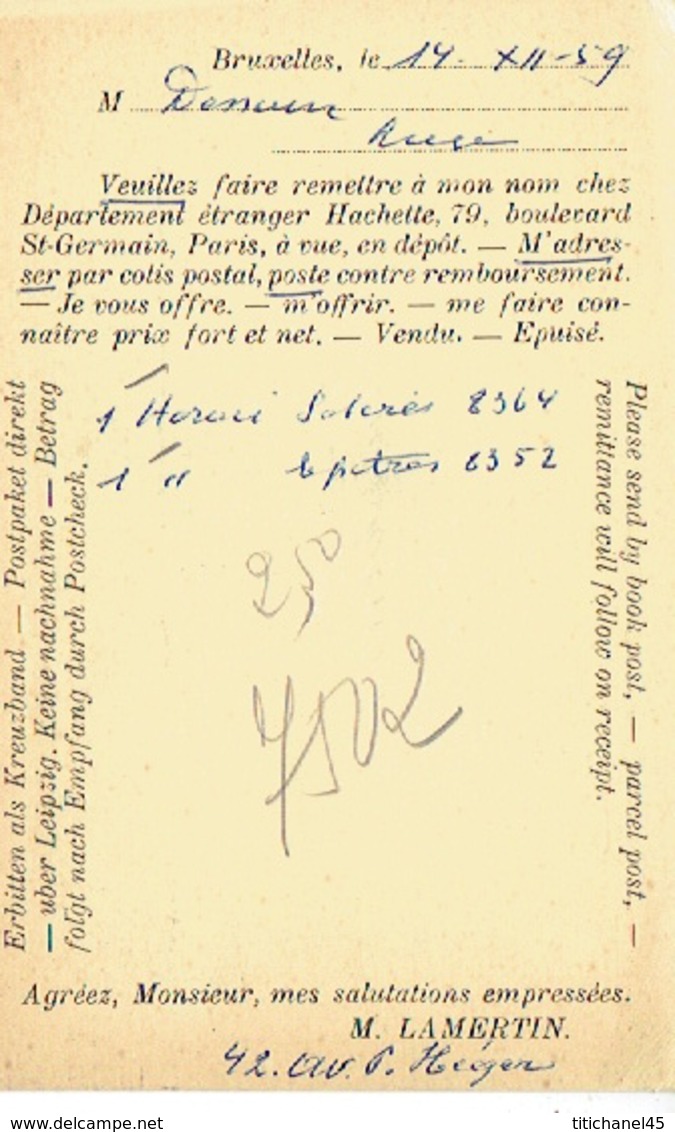 Bruxelles, le 14 - XII - 59
M
Veuillez faire remettre à mon nom chez
Département étranger Hachette, 79, boulevard
St-Germain, Paris, à vue, en dépôt. — M'adres-
ser par colis postal, poste contre remboursement.
— Je vous offre. — m'offrir. — me faire con-
naître prix fort et net. — Vendu. — Epuisé.
1 Horace Satires 8364
1 " Epitres 8352
2,50
Erbitten als Kreuzband — Postpaket direkt
— uber Leipzig. Keine nachnahme — Betrag
folgt nach Empfang durch Postcheck.
Please send by book post, — parcel post, —
remittance will follow on receipt.
Agréez, Monsieur, mes salutations empressées.
M. LAMERTIN.
42. av. P. Héger
titichanel45